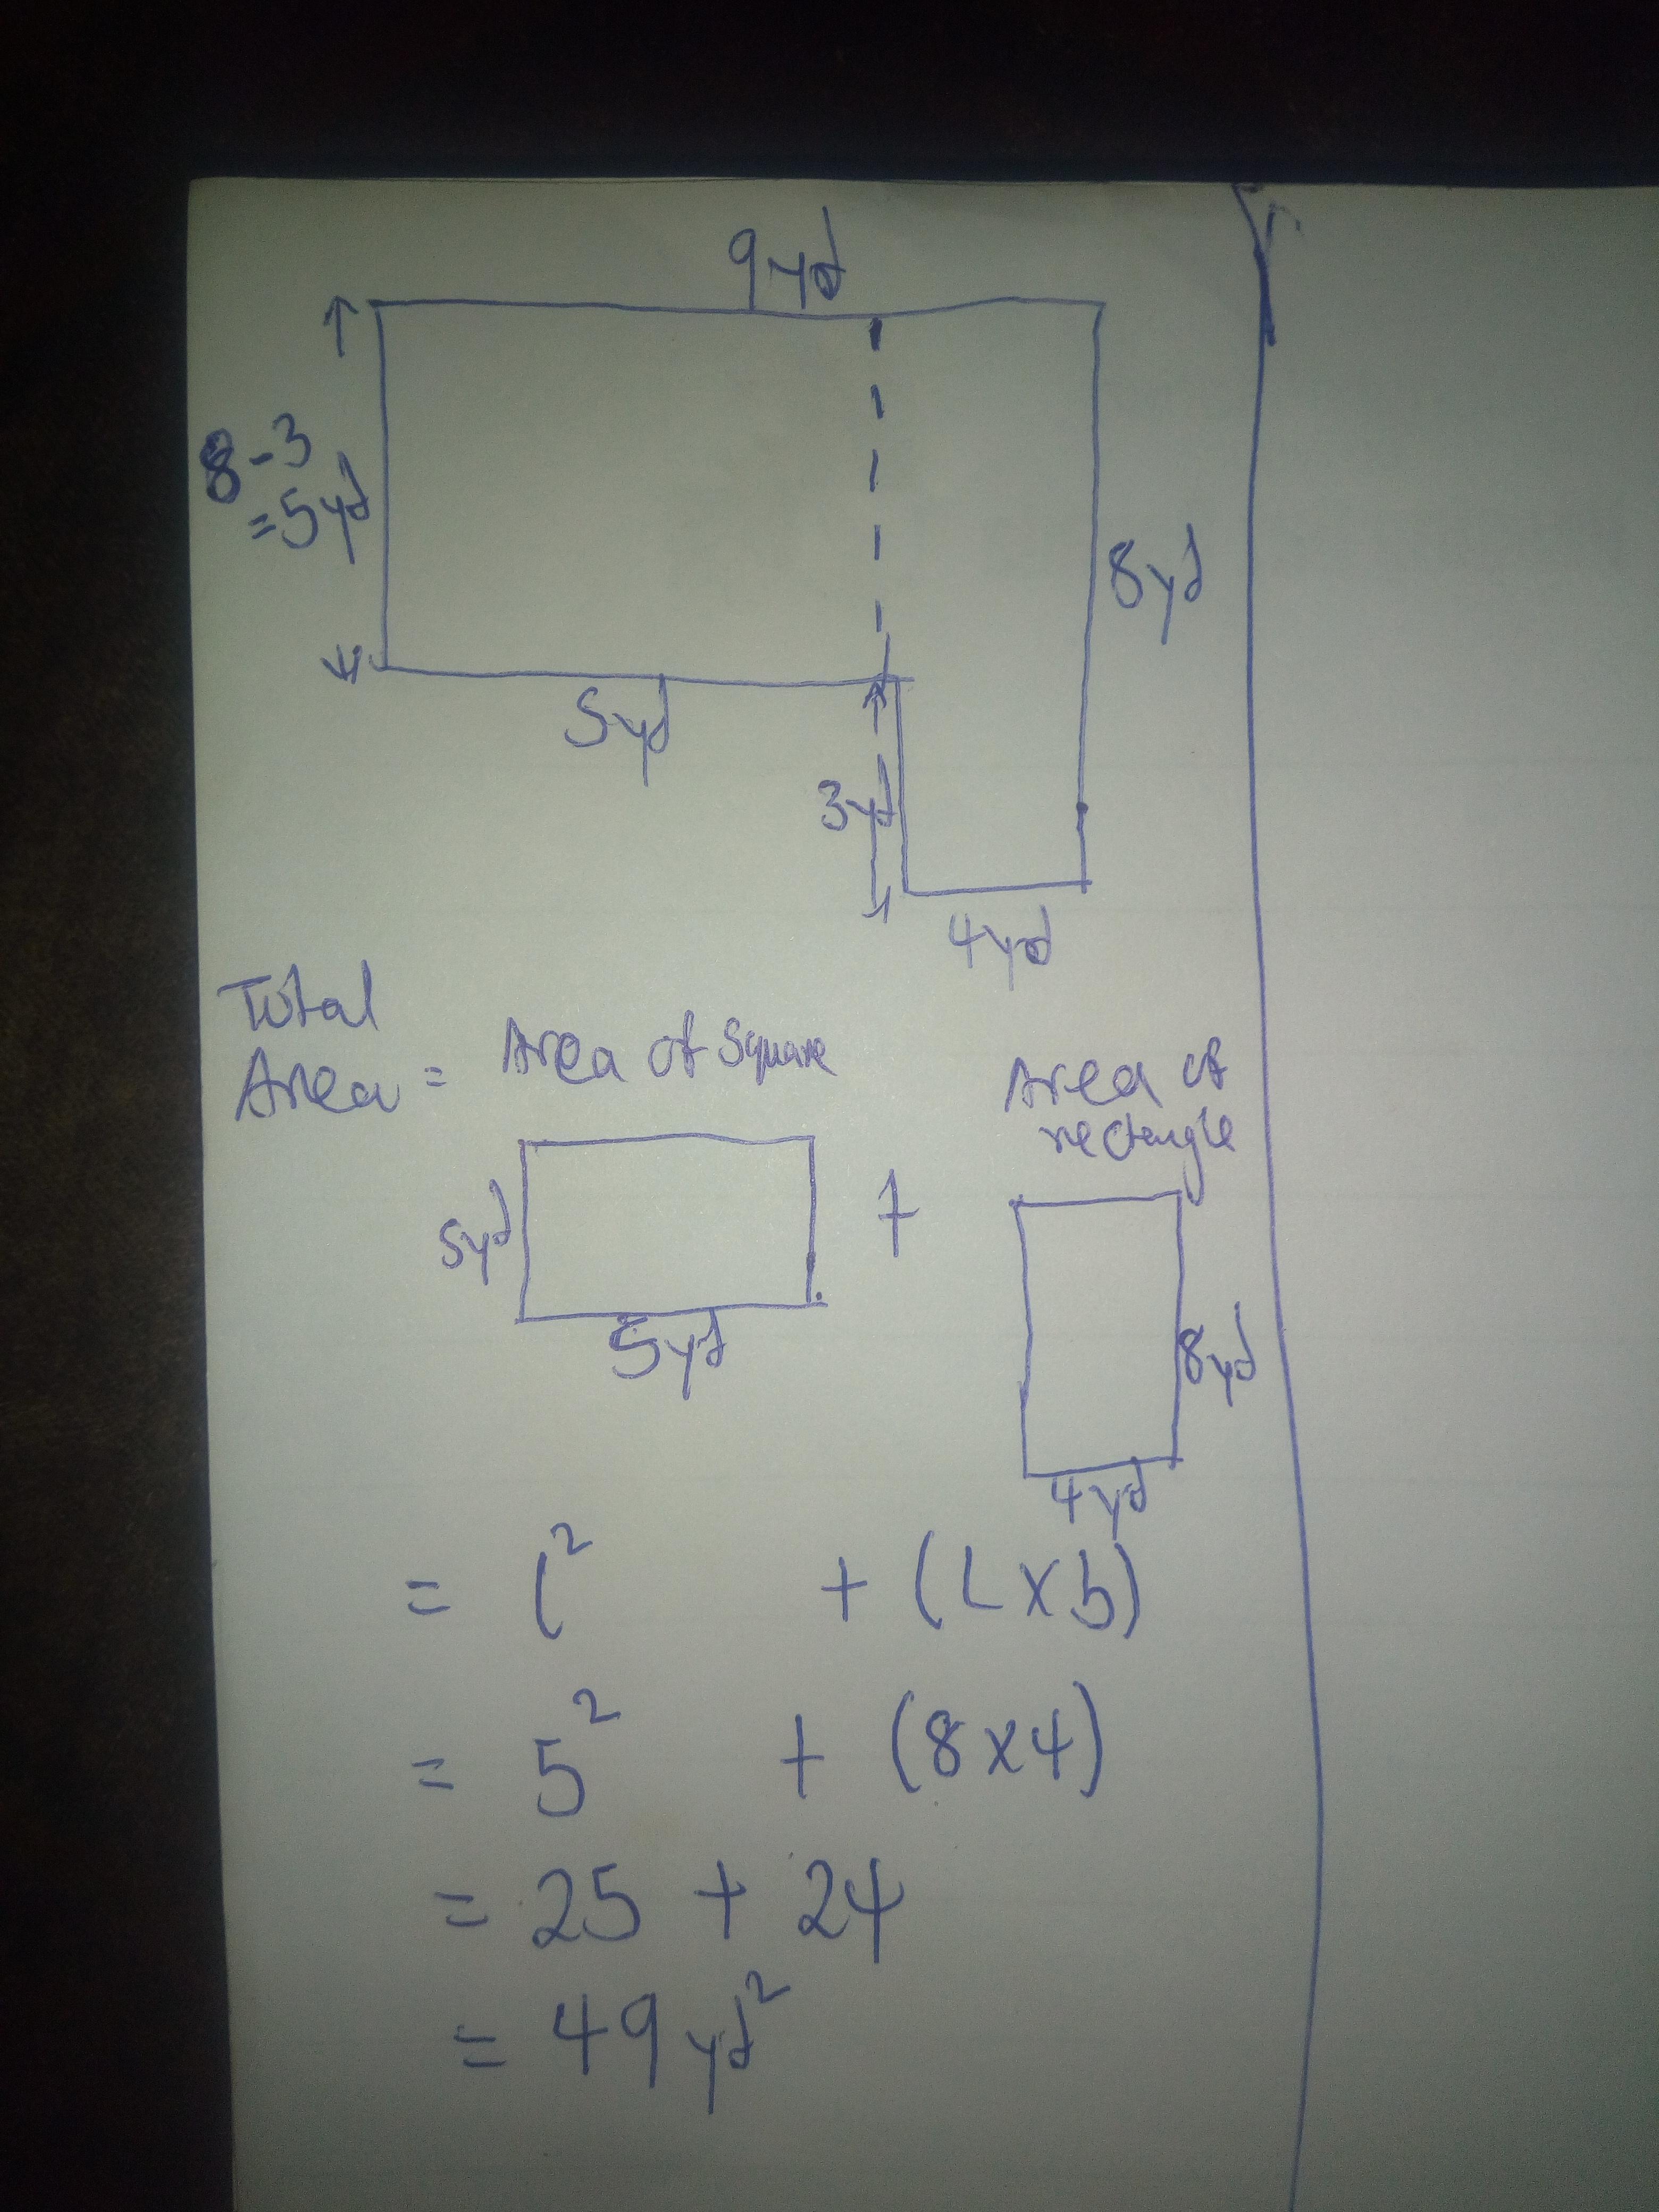 9yd
8-3
=5yd
8yd
5yd
3yd
4yd
Total
Area = Area of Square
Area of
rectangle
5yd
+
5yd
8yd
4yd
= l² + (L x b)
= 5² + (8x4)
= 25 + 24
= 49 yd²